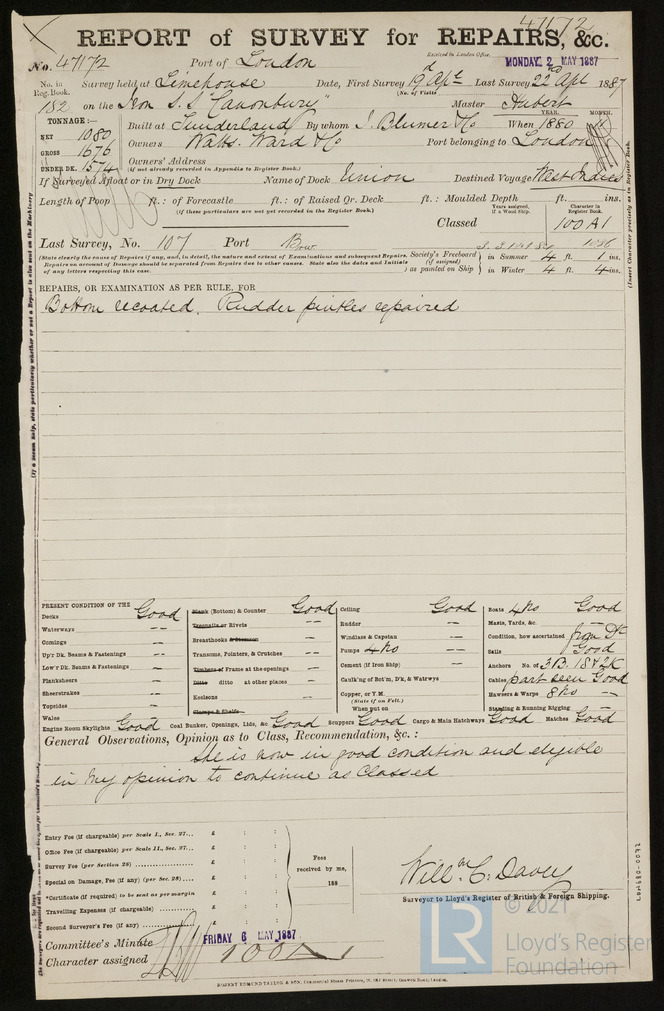 47172
REPORT of SURVEY for REPAIRS, &c.
No. 47172 Port of London Received in London Office, MONDAY 2 MAY 1887
No. in Reg. Book. Survey held at Limehouse Date, First Survey 19th Apl Last Survey 22nd Apl 1887
(No. of Visits
182 on the Iron S.S "Canonbury" Master Hubert
TONNAGE:— YEAR. MONTH.
NET 1080 Built at Sunderland By whom J. Blumer & Co When 1880
GROSS 1676 Owners Watts. Ward & Co Port belonging to London
UNDER DK. 1574 Owners' Address
(if not already recorded in Appendix to Register Book.)
If Surveyed Afloat or in Dry Dock Name of Dock Union Destined Voyage West Indies
Length of Poop ft.: of Forecastle ft.: of Raised Qr. Deck ft.: Moulded Depth ft. ins.
(if these particulars are not yet recorded in the Register Book.)
Years assigned, if a Wood Ship. Character in Register Book.
Classed 100 A1
Last Survey, No. 107 Port Bow
(State clearly the cause of Repairs if any, and, in detail, the nature and extent of Examinations and subsequent Repairs. Society's Freeboard in Summer 4 ft. 1 ins.
Repairs on account of Damage should be separated from Repairs due to other causes. State also the dates and Initials (if assigned)
of any letters respecting this case. ) as painted on Ship in Winter 4 ft. 4 ins.
REPAIRS, OR EXAMINATION AS PER RULE, FOR
Bottom recoated. Rudder pintles repaired
PRESENT CONDITION OF THE
Decks Good
Waterways "
Comings "
Up'r Dk. Beams & Fastenings "
Low'r Dk. Beams & Fastenings "
Planksheers "
Sheerstrakes "
Topsides "
Wales
Plank (Bottom) & Counter Good
Treenails or Rivets "
Breasthooks & Stemson "
Transoms, Pointers, & Crutches "
Timbers of Frame at the openings "
Ditto ditto at other places "
Keelsons "
Clamps & Shelfs
Ceiling Good
Rudder "
Windlass & Capstan "
Pumps 4 No "
Cement (if Iron Ship) "
Caulk'g of Bot'm, D'k, & Watrwys
Copper, or Y.M.
(State if on Felt.)
When put on
Boats 4 No Good
Masts, Yards, &c. "
Condition, how ascertained from Dk
Sails Good
Anchors No. of 3 B. 1 S & 2 K
Cables part seen Good
Hawsers & Warps 8 No "
Standing & Running Rigging "
Engine Room Skylights Good Coal Bunker, Openings, Lids, &c Good Scuppers Good Cargo & Main Hatchways Good Hatches Good
General Observations, Opinion as to Class, Recommendation, &c. :
She is now in good condition and eligible
in my opinion to continue as Classed
Entry Fee (if chargeable) per Scale I., Sec. 27... £ : :
Office Fee (if chargeable) per Scale II., Sec. 27... £ : :
Survey Fee (per Section 28) £ : :
Special on Damage, Fee (if any) (per Sec. 28) £ : :
*Certificate (if required) to be sent as per margin £ : :
Travelling Expenses (if chargeable) £ : :
Second Surveyor's Fee (if any) £ : :
Fees received by me, 188
Willm C. Davey
Surveyor to Lloyd's Register of British & Foreign Shipping.
Committee's Minute FRIDAY 6 MAY 1887
Character assigned 100A1
ROBERT EDMUND TAYLOR & SON, Commercial Steam Printers,
LR
© 2021
Lloyd's Register
Foundation